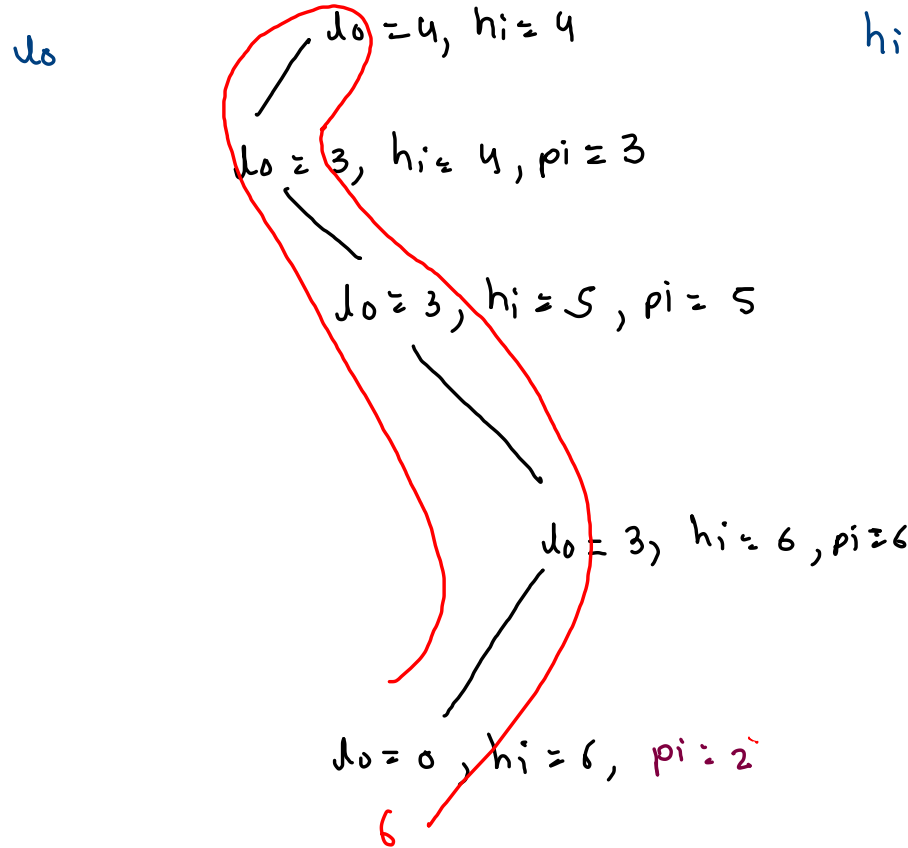 lo = 4, hi = 4
lo hi
lo = 3, hi = 4, pi = 3
lo = 3, hi = 5, pi = 5
lo = 3, hi = 6, pi = 6
lo = 0, hi = 6, pi = 2
6